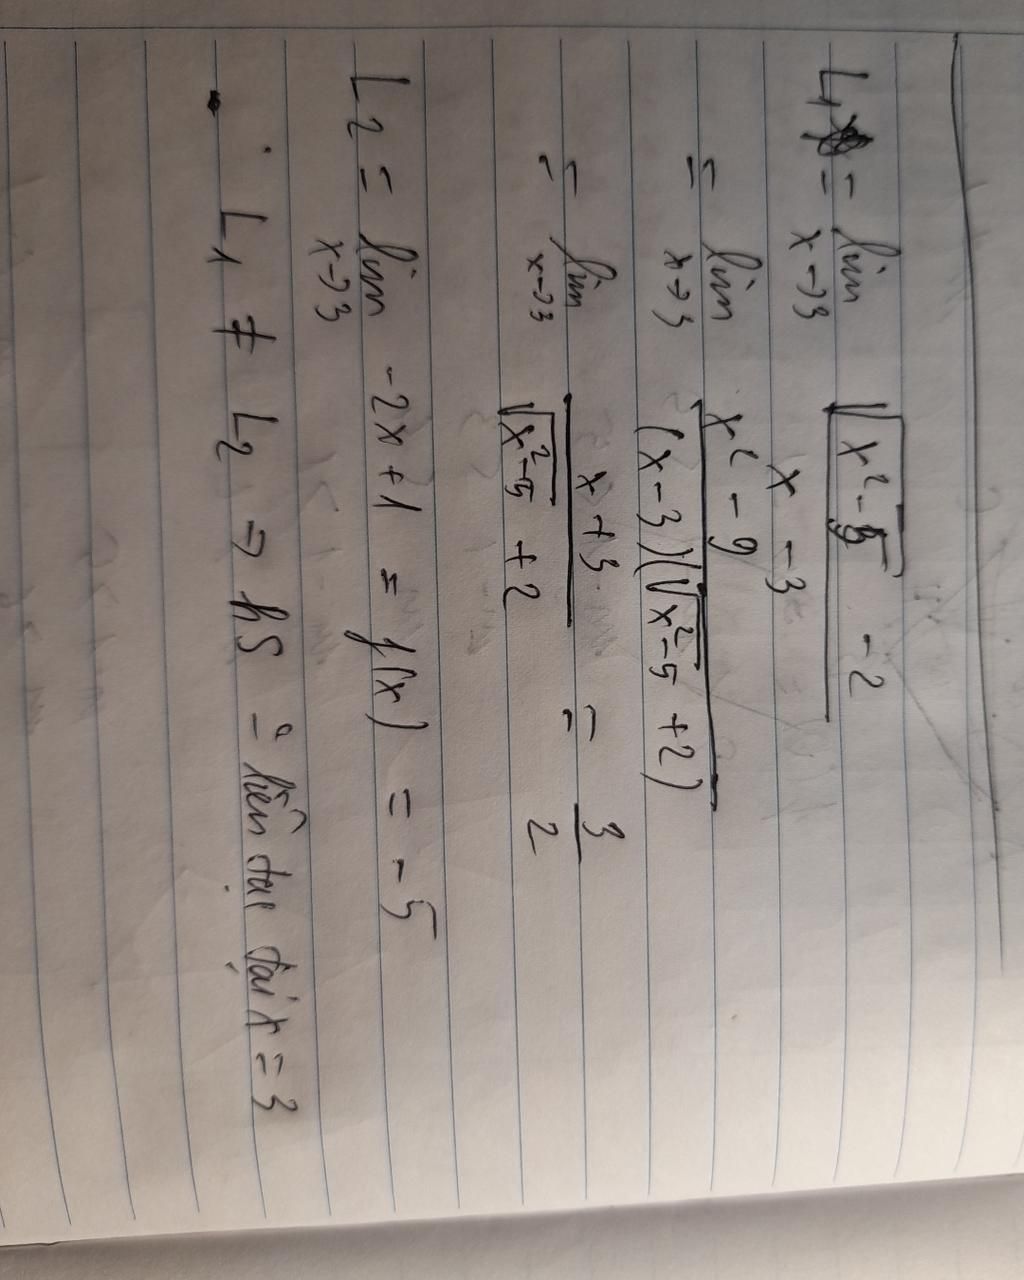 L1 = lim x→3 (√(x² - 5) - 2) / (x - 3)
= lim x→3 (x² - 9) / ((x - 3)(√(x² - 5) + 2))
= lim x→3 (x + 3) / (√(x² - 5) + 2) = 3/2
L2 = lim x→3 -2x + 1 = f(x) = -5
L1 ≠ L2 ⇒ hs liên tại x = 3